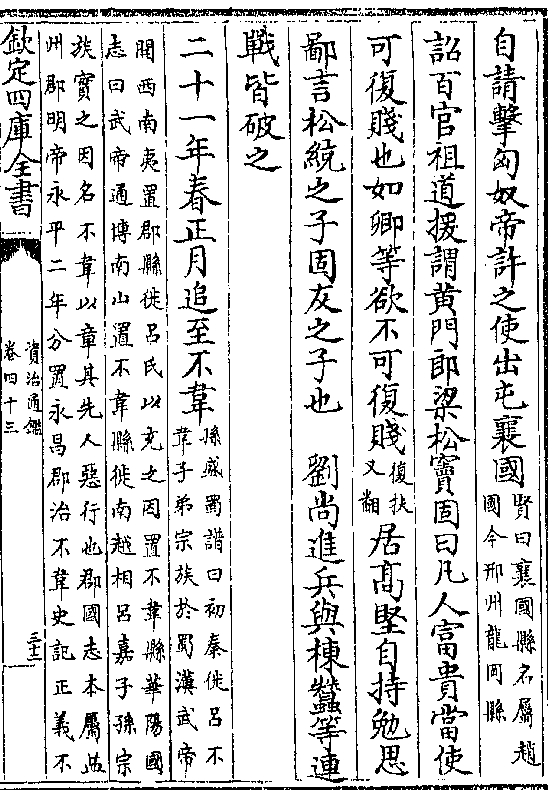 自請擊匈奴帝許之使出屯襄國賢曰襄國縣名屬趙國今邢州龍岡縣
詔百官祖道援謂黄門郎梁松竇固曰凡人富貴當使
可復賤也如卿等欲不可復賤復扶又翻居髙堅自持勉思
鄙言松統之子固友之子也　劉尚進兵與棟蠶等連
戰皆破之
二十一年春正月追至不韋孫盛蜀譜曰初秦徙吕不韋子弟宗族於蜀漢武帝
開西南夷置郡縣徙吕氏以充之因置不韋縣華陽國
志曰武帝通博南山置不韋縣徙南越相吕嘉子孫宗
族實之因名不韋以章其先人惡行也郡國志本屬益
州郡明帝永平二年分置永昌郡治不韋史記正義不
欽定四庫全書
資治通鑑
卷四十三
三十三